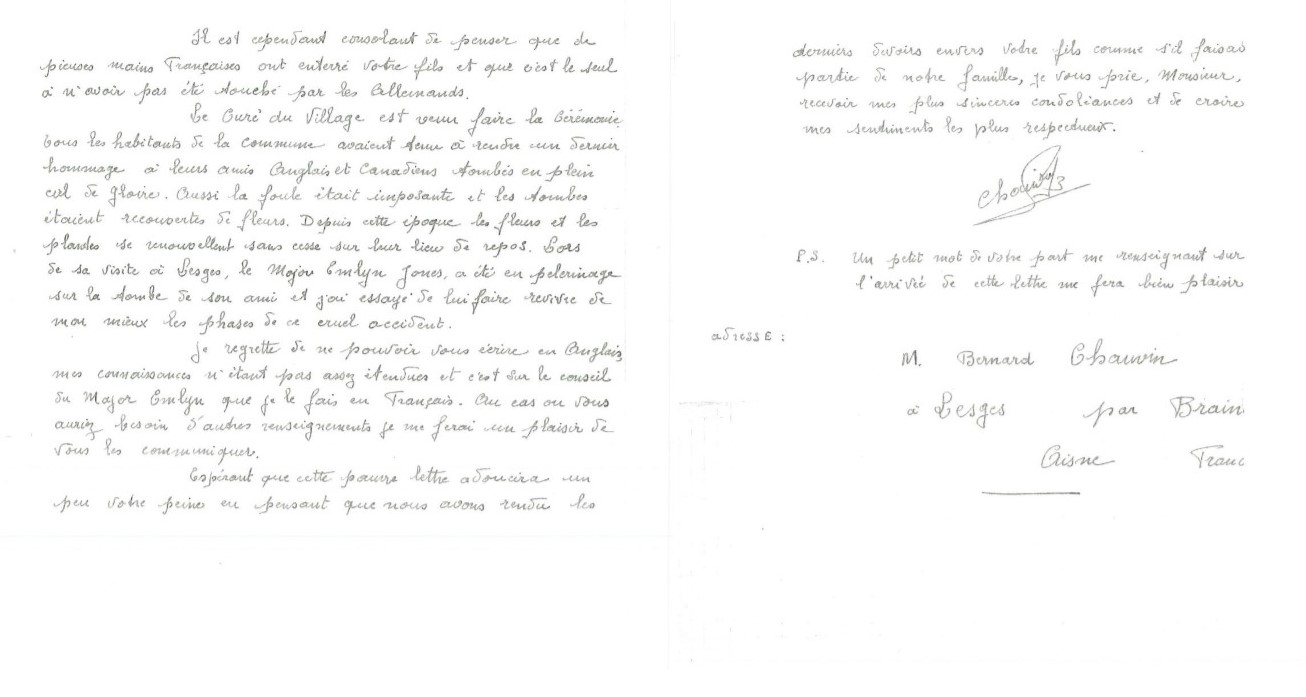 Il est cependant consolant de penser que de
pieuses mains Françaises ont enterré votre fils et que c'est le seul
à n'avoir pas été touché par les Allemands.
Le Curé du Village est venu faire la Cérémonie
tous les habitants de la commune avaient tenu à rendre un dernier
hommage à leurs amis Anglais et Canadiens tombés en plein
ciel de gloire. Aussi la foule était imposante et les tombes
étaient recouvertes de fleurs. Depuis cette époque les fleurs et les
plantes se renouvellent sans cesse sur leur lieu de repos. Lors
de sa visite à Lesges, le Major Emlyn Jones, a été en pelerinage
sur la tombe de son ami et j'ai essayé de lui faire revivre de
mon mieux les phases de ce cruel accident.
Je regrette de ne pouvoir vous écrire en Anglais
mes connaissances n'étant pas assez étendues et c'est sur le conseil
du Major Emlyn que je le fais en Français. Au cas ou vous
auriez besoin d'autres renseignements je me ferai un plaisir de
vous les communiquer.
Espérant que cette pauvre lettre adoucira un
peu votre peine en pensant que nous avons rendu les
derniers devoirs envers votre fils comme s'il faisait
partie de notre famille, je vous prie, Monsieur,
recevoir mes plus sincères condoléances et de croire
mes sentiments les plus respectueux.
Chauvin
P.S. Un petit mot de votre part me renseignant sur
l'arrivée de cette lettre me fera bien plaisir
adresse :
M. Bernard Chauvin
à Lesges par Braine
Aisne Franc